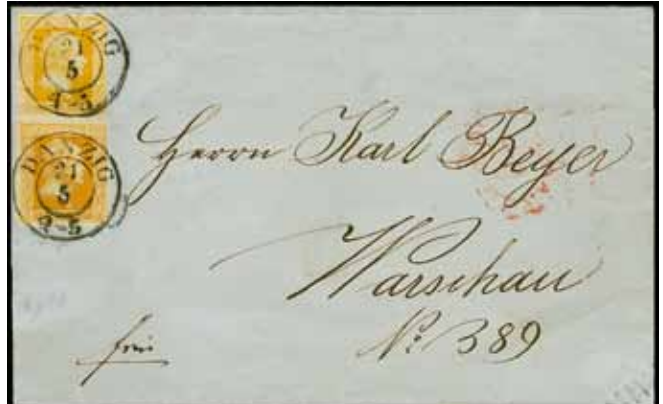 DANZIG
21
5
4-5
DANZIG
21
5
4-5
Herrn Karl Beyer
Warschau
No. 389
frei